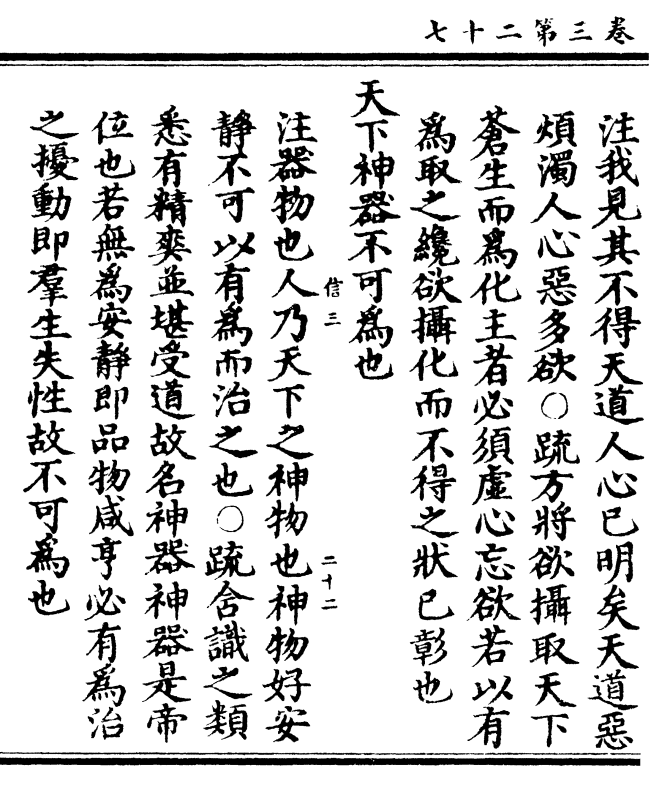 七十二第三卷
注我見其不得天道人心已明矣天道惡
煩濁人心惡多欲○疏方將欲攝取天下
蒼生而為化主者必須虛心忘欲若以有
為取之纔欲攝化而不得之狀已彰也
天下神器不可為也
信三
二十二
注器物也人乃天下之神物也神物好安
靜不可以有為而治之也○疏含識之類
悉有精爽並堪受道故名神器神器是帝
位也若無為安靜即品物咸亨必有為治
之擾動即羣生失性故不可為也